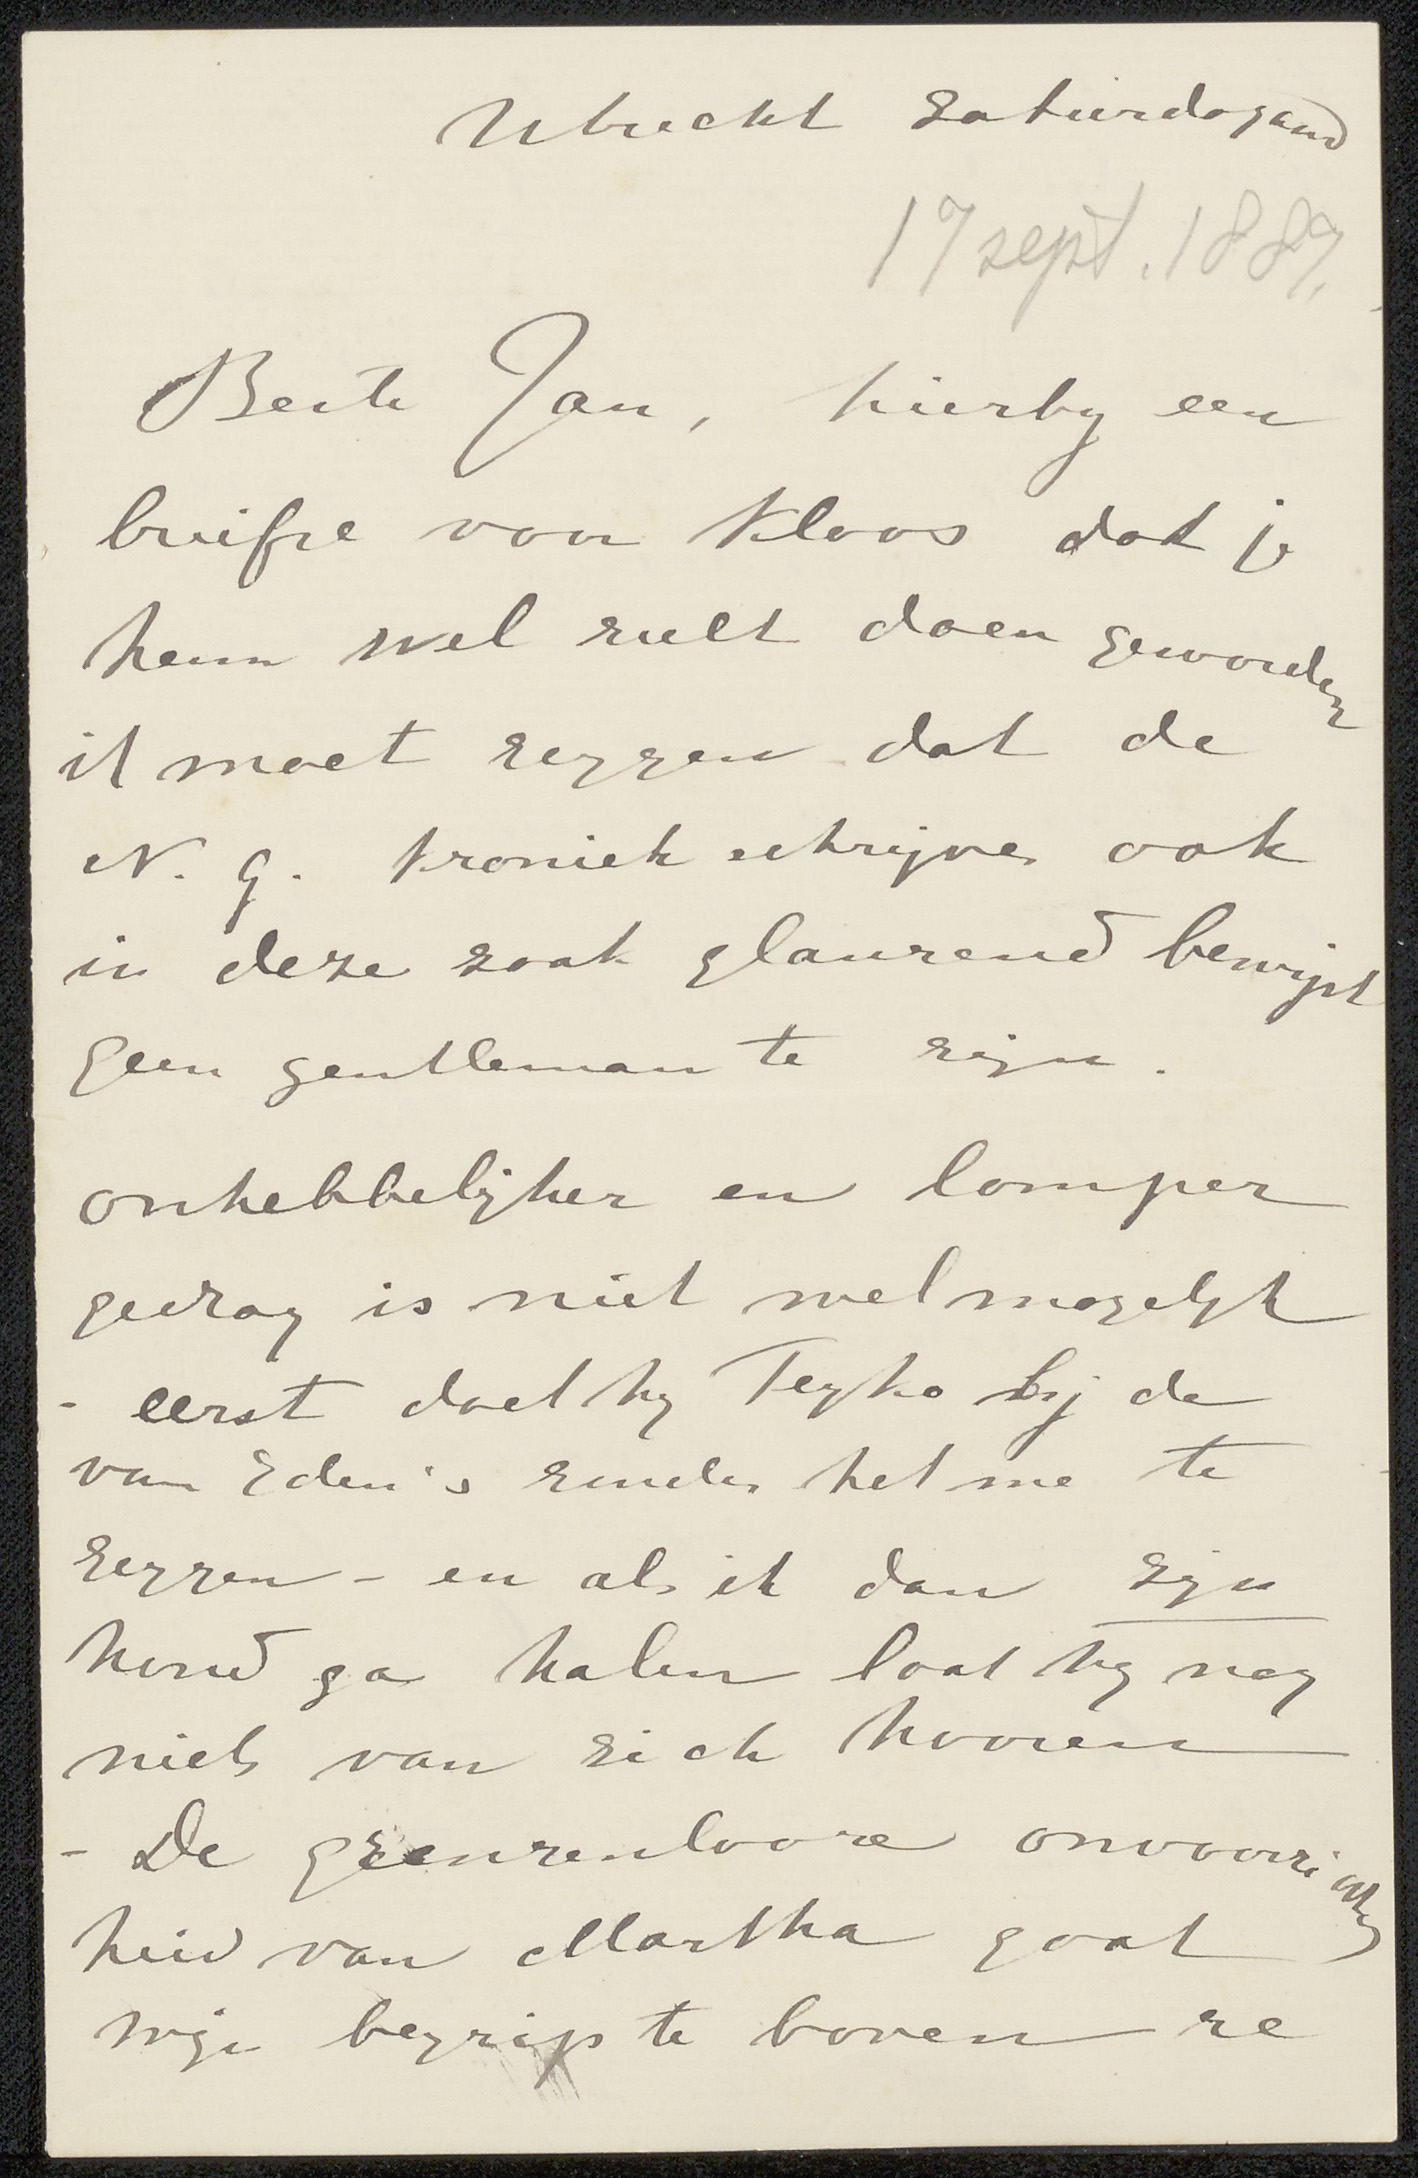 Utrecht Saturdagavnd
17 sept. 1887.
Beste Jan, hierby een
briefje van Kloos dat je
hem wel zult doen geworden
ik moet zeggen dat de
N. G. Kroniekschrijver ook
in deze zaak glanzend bewijst
geen gentleman te zijn.
onhebbelijker en lomper
gedrag is niet wel mogelijk
- eerst doet hy Teyho bij de
van Eden's zonder het me te
zeggen - en als ik dan zijn
hond ga halen laat hy nog
niets van zich hooren
- De grenzenlooze onvoorzichtig
heid van Martha gaat
mijn begrip te boven ze